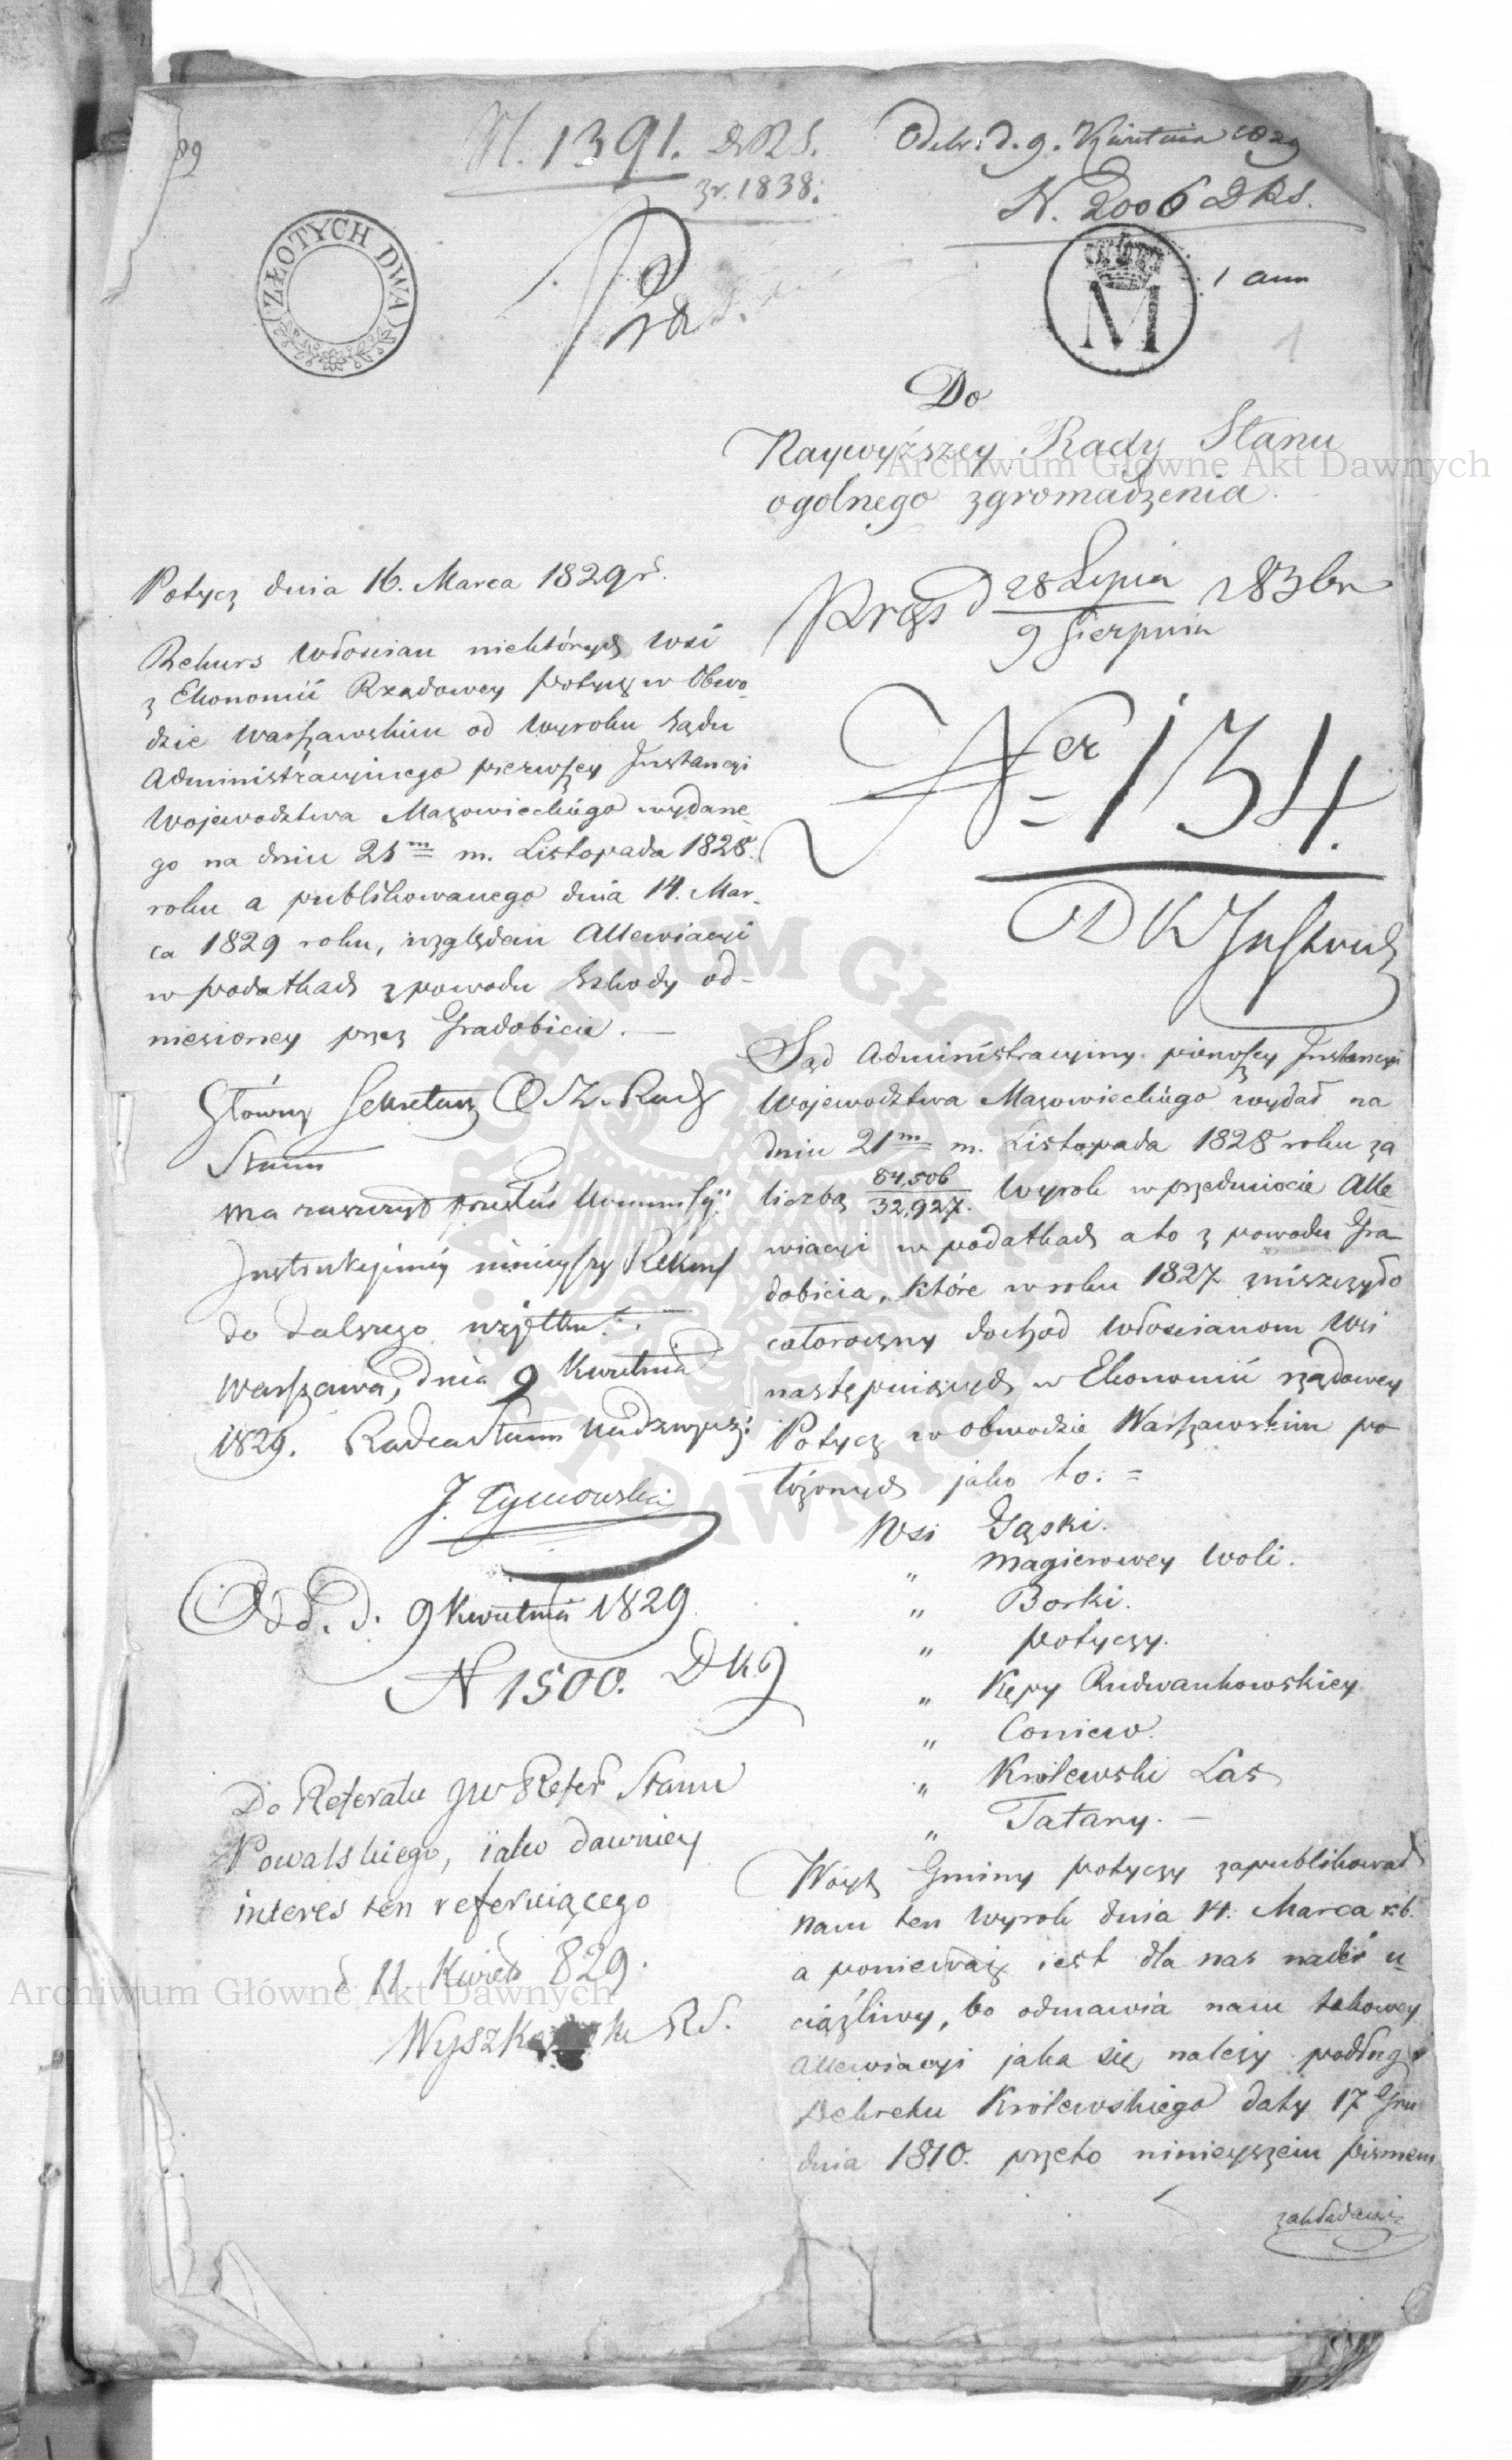 N. 1391. DRS.
z r. 1838.
Odebr. d. 9. Kwietnia 1829
N. 2006 DRS.
ZŁOTYCH DWA
M
1 ann
1
Do
Naywyższey Rady Stanu
ogolnego zgromadzenia.
Potycz dnia 16. Marca 1829 r.
Rekurs Włościan niektórych Wsi
z Ekonomii Rządowey Potycz w Obwo-
dzie Warszawskim od Wyroku Sądu
Administracyinego pierwszey Instancyi
Województwa Mazowieckiego wydane-
go na dniu 21m m. Listopada 1828.
roku a publikowanego dnia 14. Mar-
ca 1829 roku, względem Allewiacyi
w podatkach z powodu Szkody od-
niesioney przez Gradobicie. —
Główny Sekretarz Rady
Stanu
ma zaszczyt
Instrukcyiney ninieyszy Rekurs
do dalszego użytku.
Warszawa, dnia 9 Kwietnia
1829. Radca Stanu Nadzwycz:
J. Tymowski
Odd. d. 9 Kwietnia 1829
N 1500. DKJ
Do Referatu JW Refer. Stanu
Kowalskiego, iako dawniey
interes ten referuiącego
d 11 Kwiet. 829.
RS.
Prez d 28 Lipca / 9 Sierpnia 1836 r
Ner 134.
DKInstruk
Sąd Administracyiny pierwszey Instancyi
Województwa Mazowieckiego wydał na
dniu 21m m. Listopada 1828 roku za
liczbą 84,506 / 32,927. Wyrok w przedmiocie Alle-
wiacyi w podatkach a to z powodu Gra-
dobicia, które w roku 1827 zniszczyło
całoroczny dochod Włościanom Wsi
następuiących w Ekonomii rządowey
Potycz w Obwodzie Warszawskim po-
łożonych jako to: =
Wsi Gąski.
" Magierowey Woli.
" Borki.
" Potyczy.
" Kępy Rudwankowskiey
" Coniew.
" Królewski Las
" Tatary. —
Wóyt Gminy Potyczy zapublikował
nam ten Wyrok dnia 14. Marca r.b.
a ponieważ iest dla nas nader u-
ciążliwy, bo odmawia nam takowey
Allewiacyi jaka się należy podług
Dekretu Królewskiego daty 17 Gru-
dnia 1810. przeto ninieyszem pismem
zakładamy
Archiwum Główne Akt Dawnych
Archiwum Główne Akt Dawnych
ARCHIWUM GŁÓWNE AKT DAWNYCH